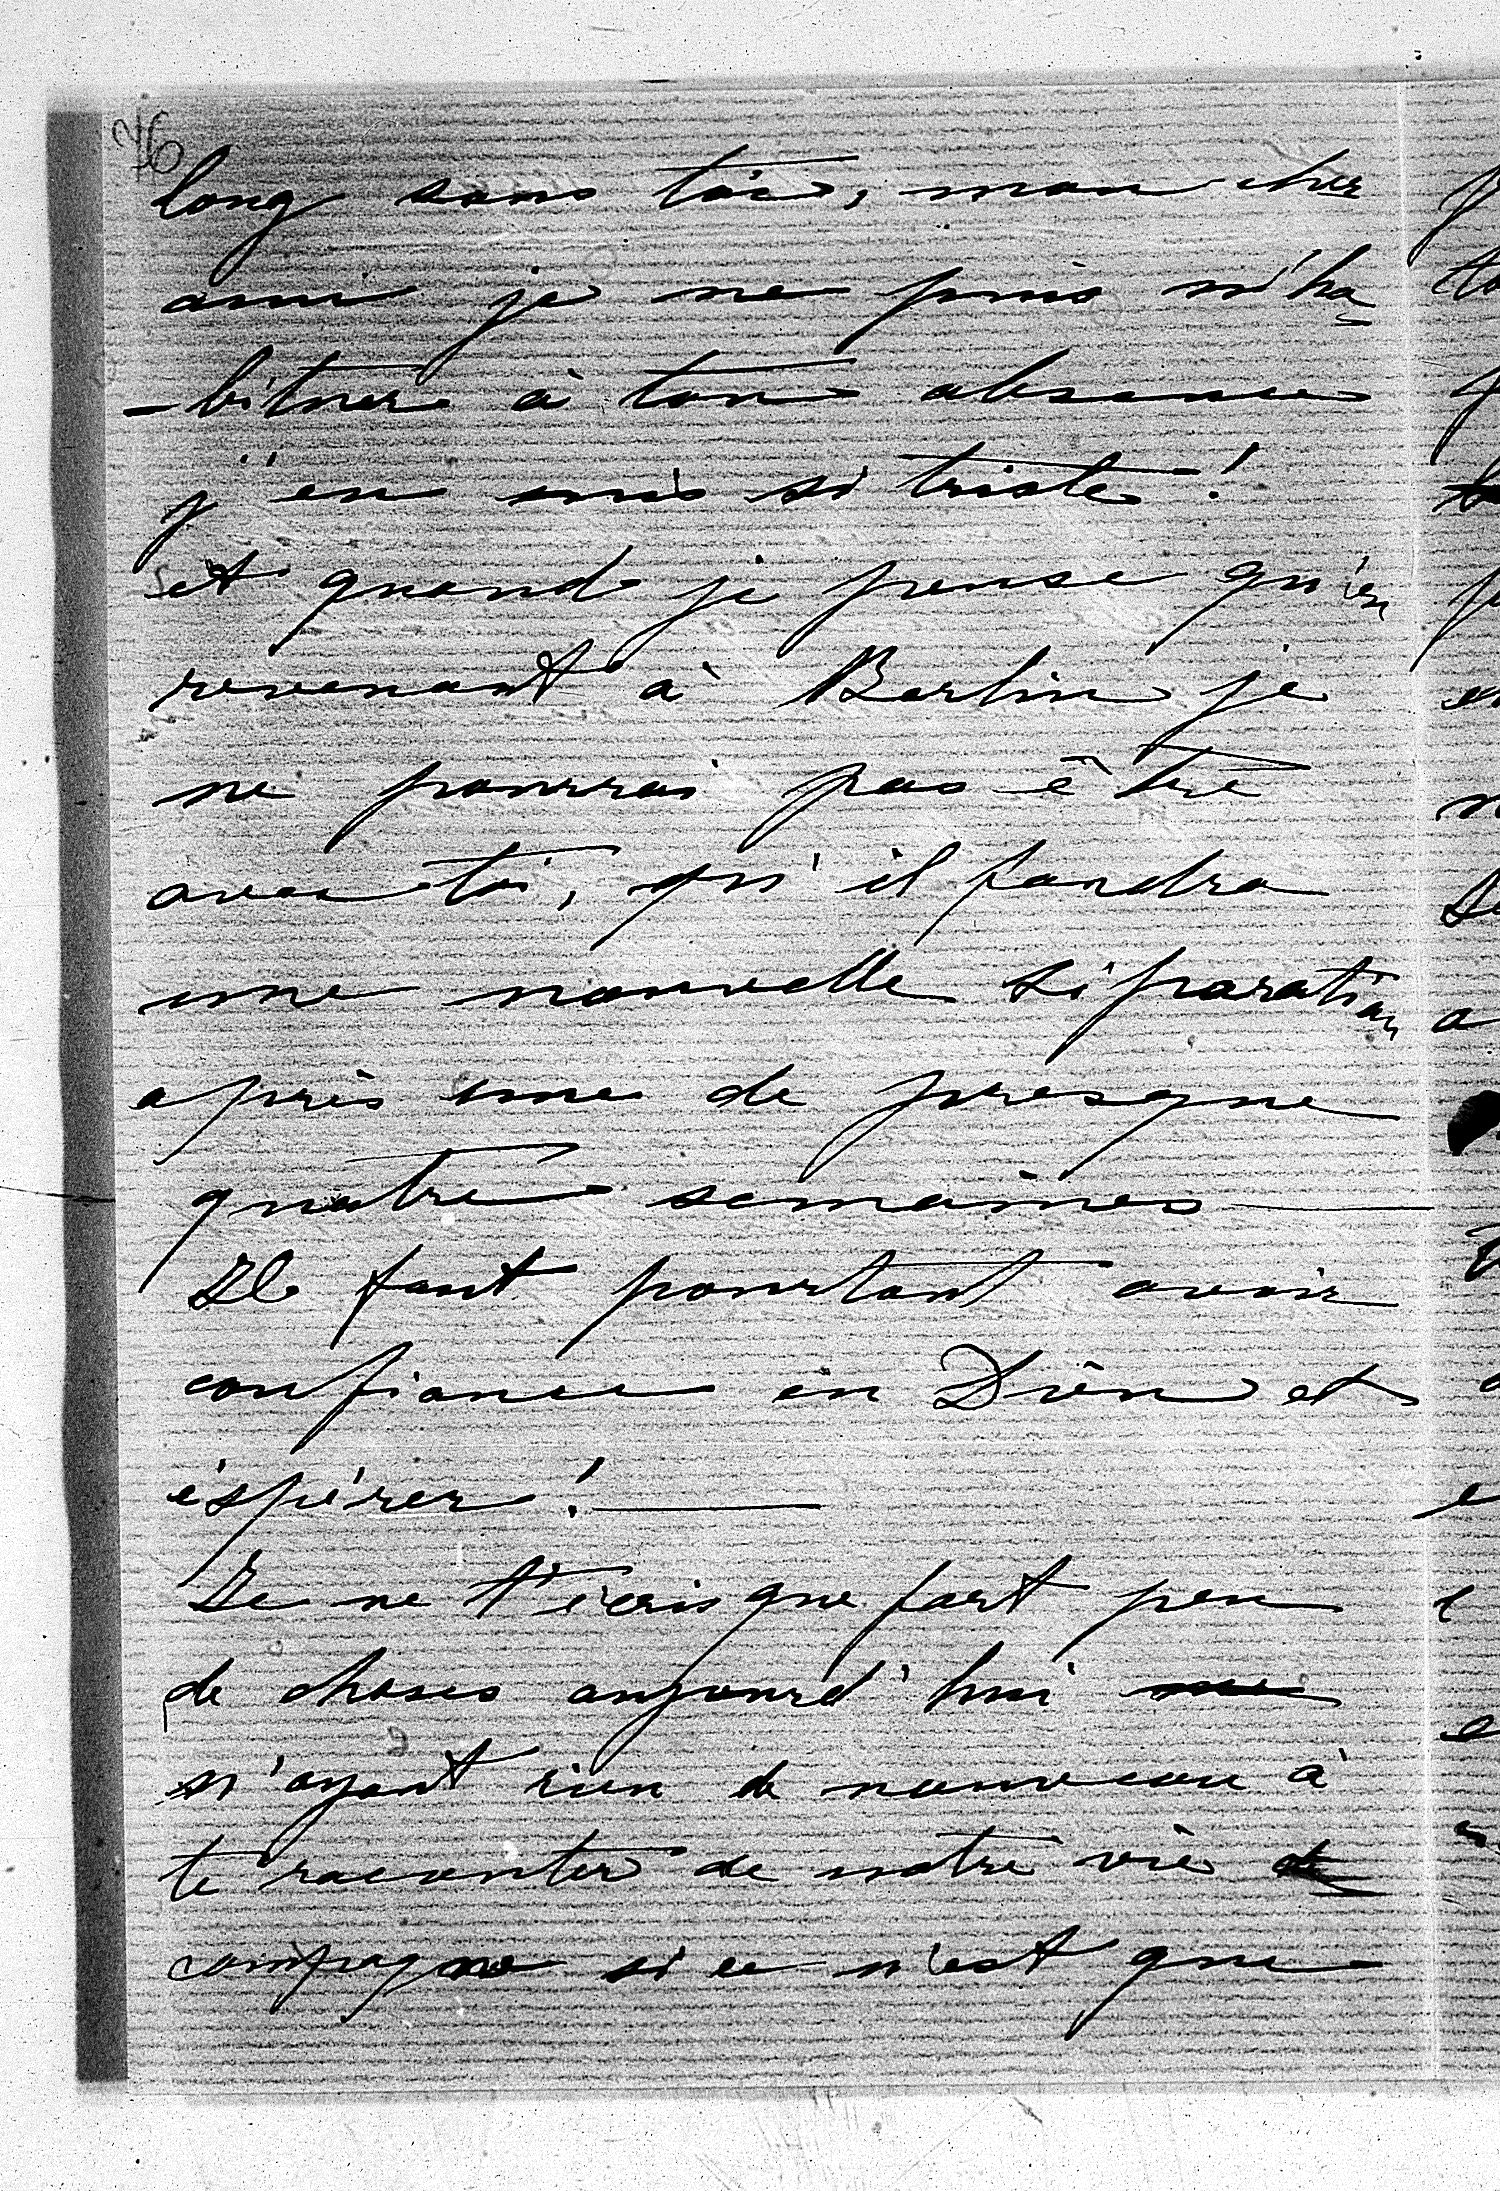 76
long sans toi, mon cher
ami je ne puis m'ha
-bituer à ton absence
j'en suis si triste!
et quand je pense qu'en
revenant à Berlin je
ne pourrai pas être
avec toi, qu'il faudra
une nouvelle séparation
après une de presque
quatre semaines —
Il faut pourtant avoir
confiance en Dieu et
éspérer! —
Je ne t'écris que fort peu
de choses aujourd'hui
n'ayant rien de nouveau à
te raconter de notre vie de
campagne si ce n'est que